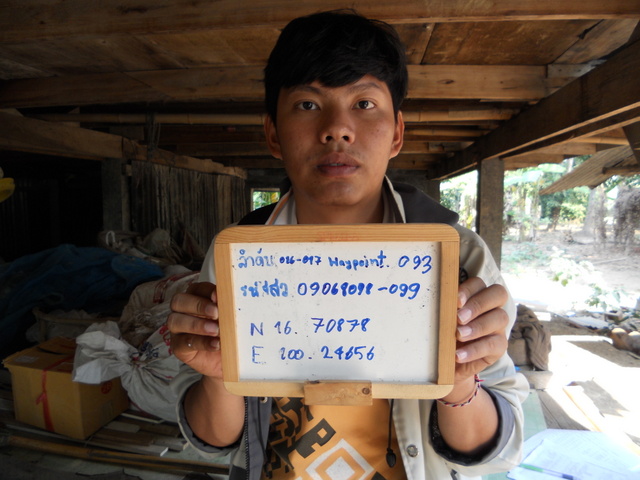 ลำดับ 016-017 Waypoint. 093
รหัส 09068098-099
N 16. 70878
E 100. 24656